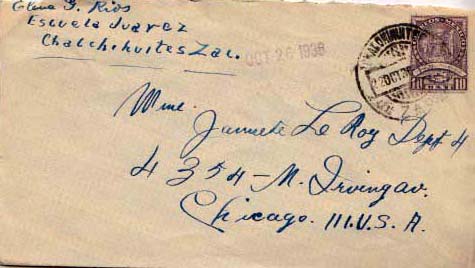 Elena G. Rios
Escuela Juarez
Chalchihuites Zac.
OCT 26 1938
10 10
Mme.
Jannete Le Roy Dept 4
4354-N. Irvingav.
Chicago. Ill. U.S.A.